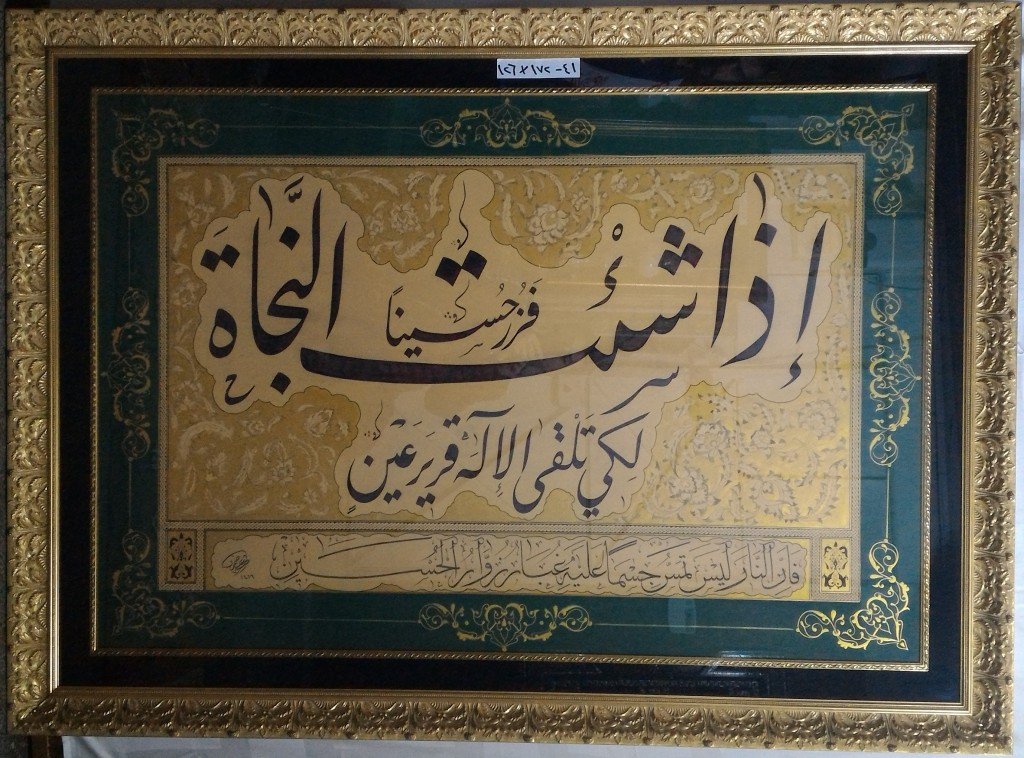 إذا شئت النَّجاة
فَزُرْ حُسيناً
لكي تَلْقى الإله قريرَ عَيْنٍ
فإن النار ليس تمس جسماً عليه غبار زوار الحسين